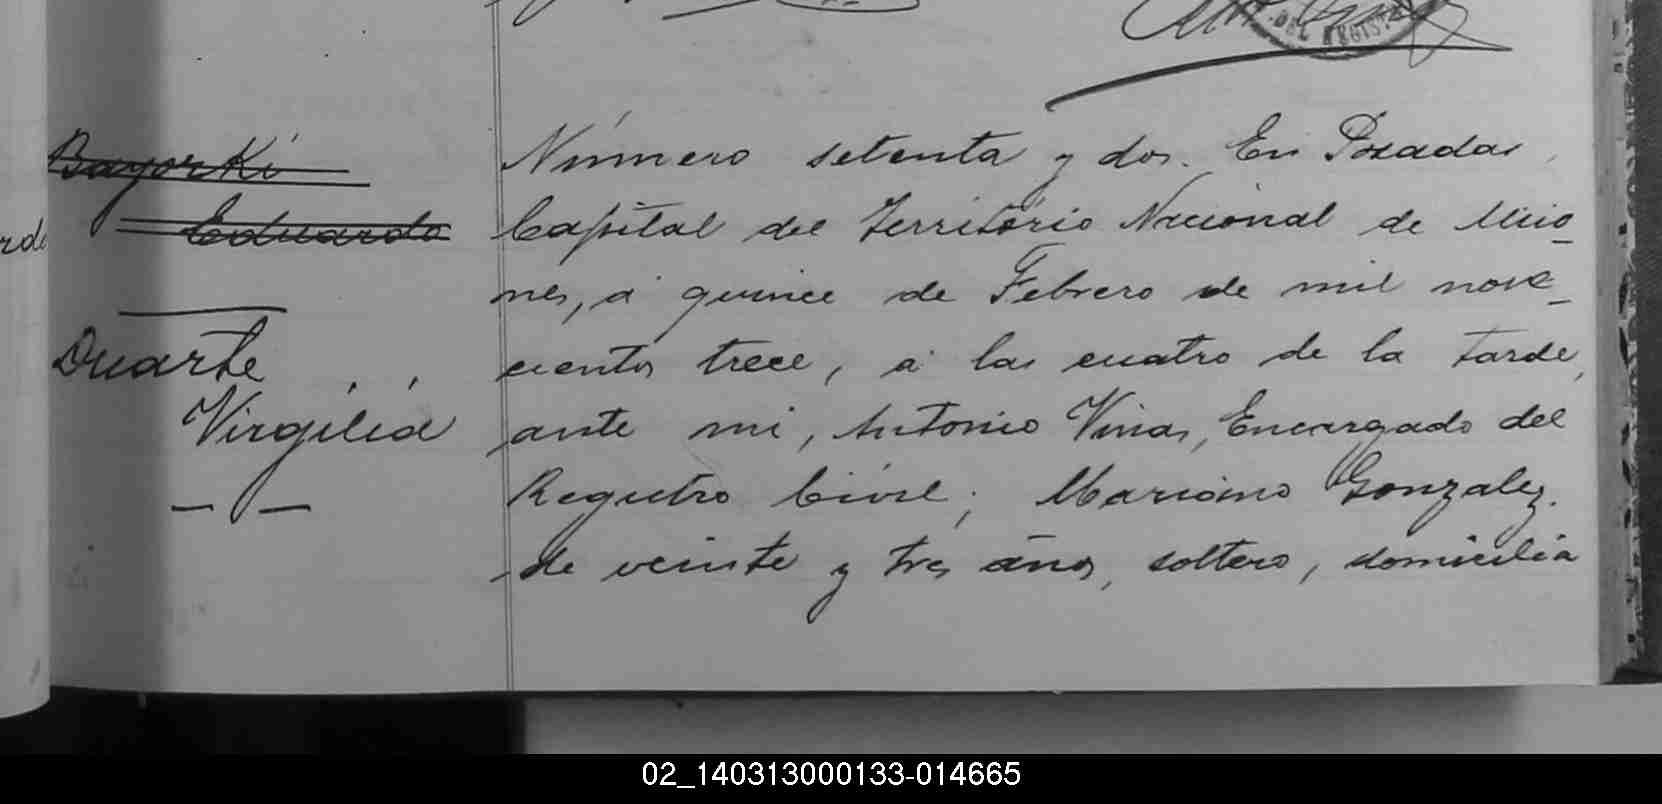 DEL REGIST
Bayorki
Eduardo
Duarte
Virgilia
Número setenta y dos. En Posadas,
Capital del Territorio Nacional de Misio_
nes, á quince de Febrero de mil nove_
cientos trece, á las cuatro de la tarde,
ante mi, Antonio Vinas, Encargado del
Registro Civil; Mariano Gonzalez.
de veinte y tres años, soltero, domicilia
02_140313000133-014665